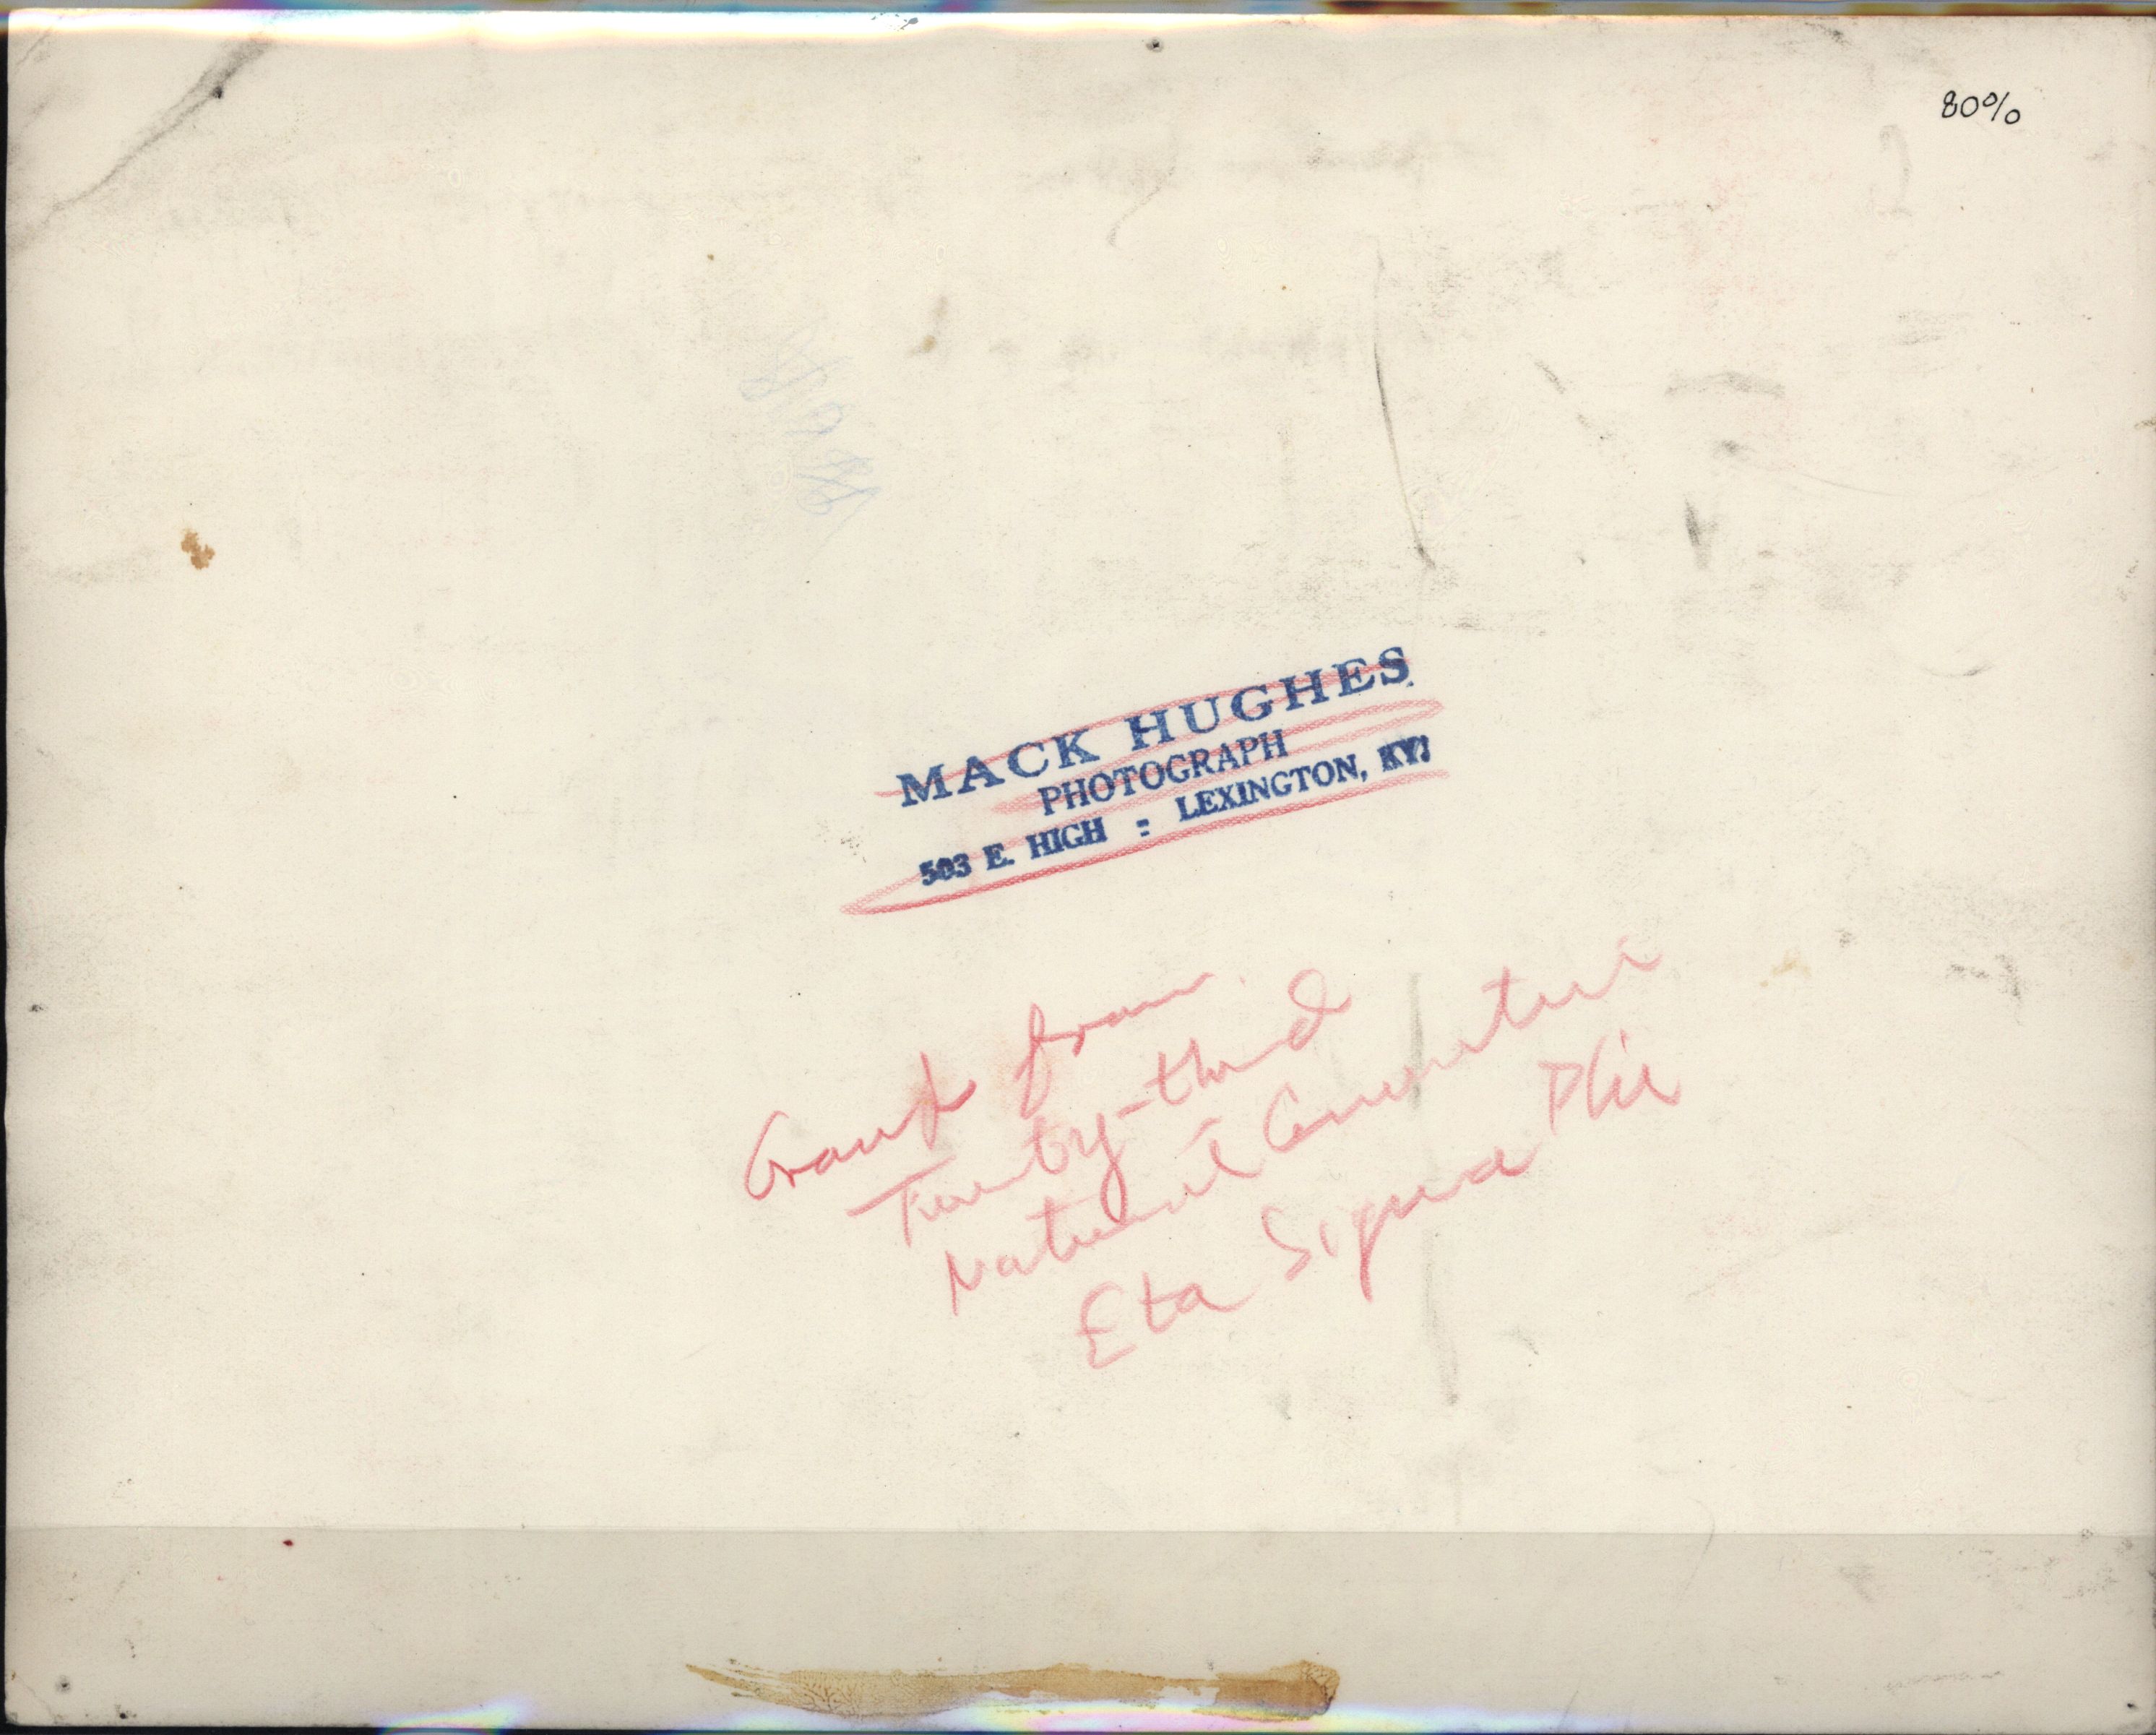 80%
MACK HUGHES
PHOTOGRAPH
503 E. HIGH - LEXINGTON, KY.
Group from
Twenty-third
National Convention
Eta Sigma Phi